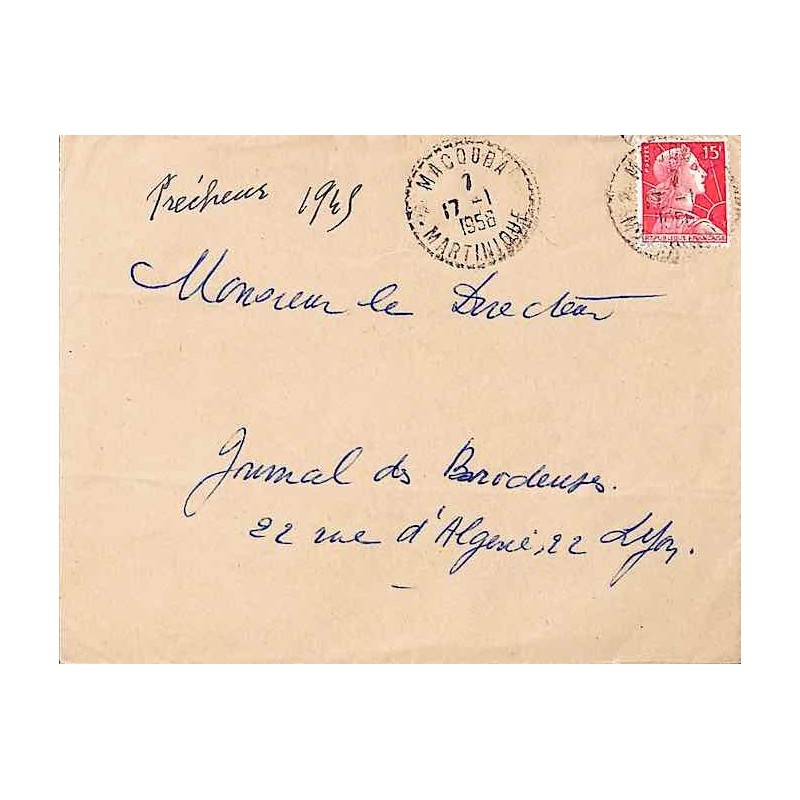 Prêcheur 1945
MACOUBA
7
17 -1
1958
MARTINIQUE
15F
POSTES
REPUBLIQUE FRANÇAISE
Monsieur le Directeur
Journal des Brodeuses.
22 rue d'Algerie, 22 Lyon.